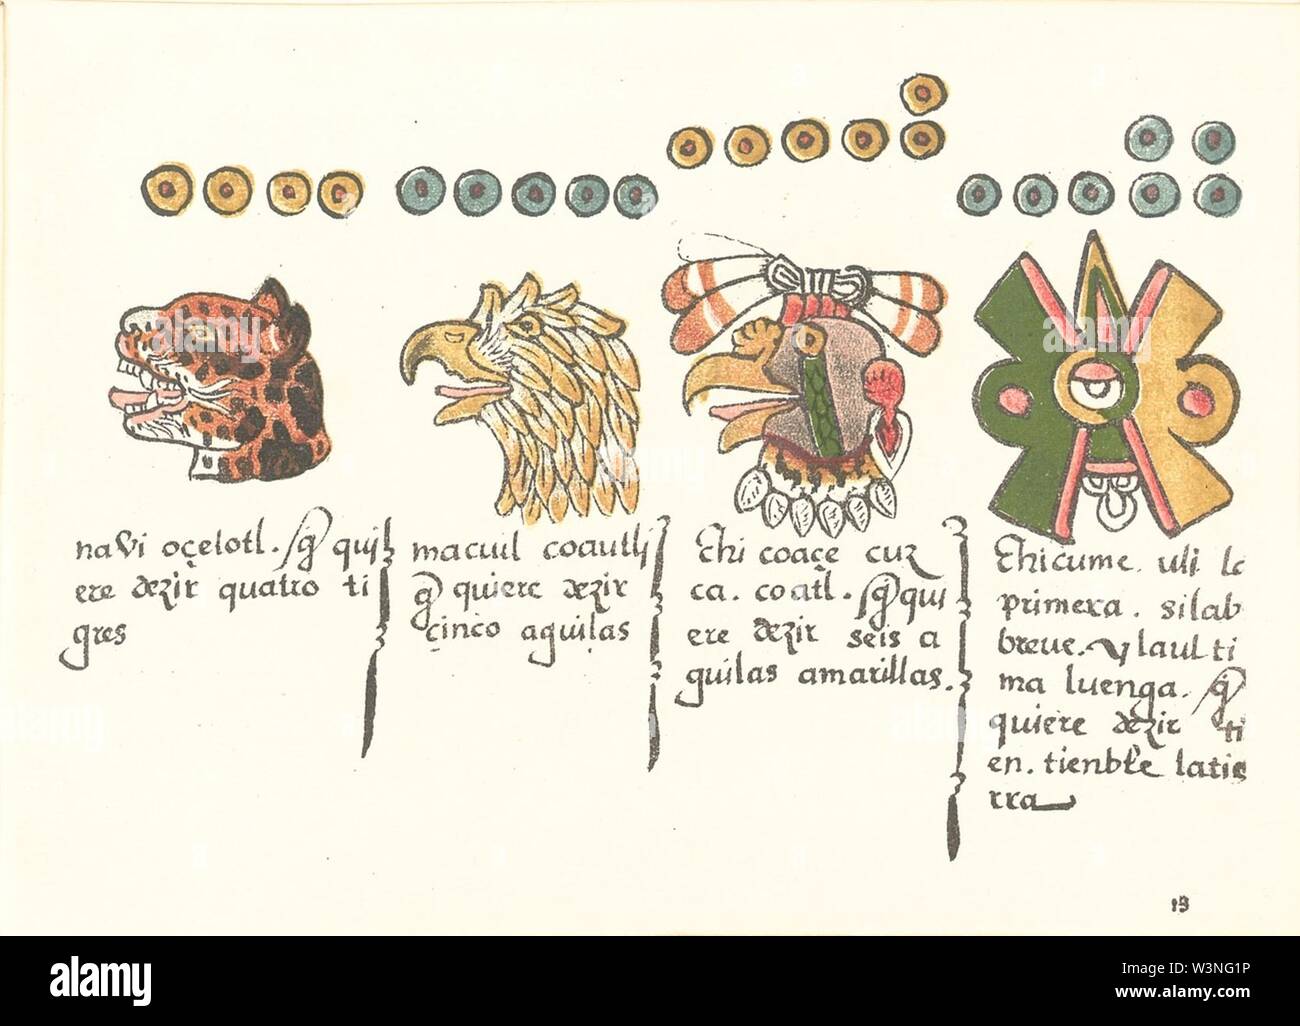 navi oçelotl. q̃ qui
ere dezir quatro ti
gres
macuil coautli
q̃ quiere dezir
çinco aguilas
chi coaçe cuz
ca. coatl. q̃ qui
ere dezir seis a
guilas amarillas.
chicume. uli la
primera. silab
breue. y la ulti
ma luenga. q̃
quiere dezir ti
en. tienble la tie
rra
19
alamy
Image ID: W3NG1P
www.alamy.com